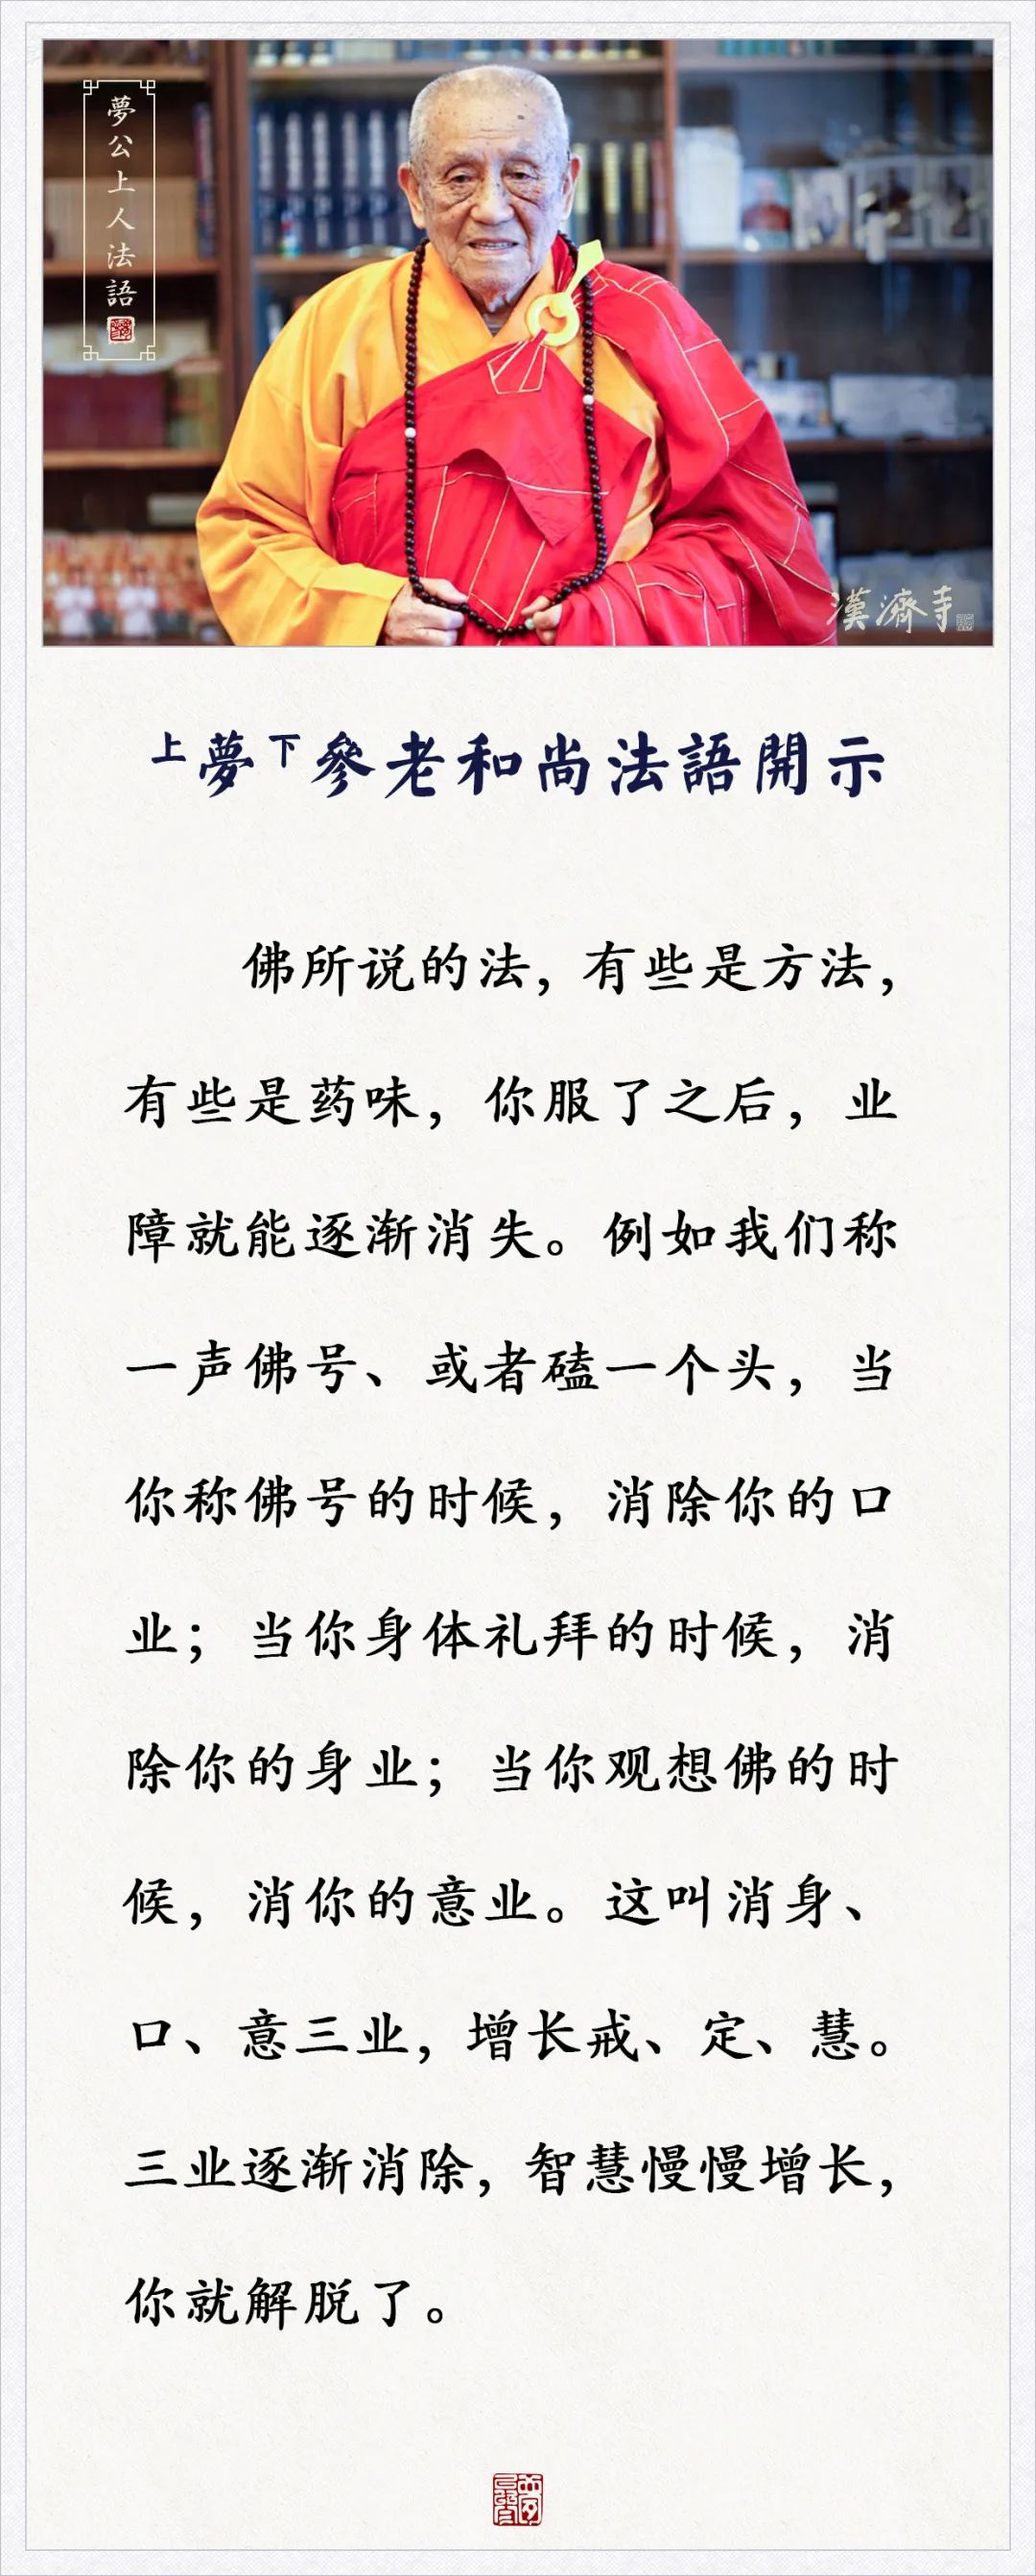 夢公上人法語
漢濟寺
上夢下參老和尚法語開示
佛所说的法，有些是方法，
有些是药味，你服了之后，业
障就能逐渐消失。例如我们称
一声佛号、或者磕一个头，当
你称佛号的时候，消除你的口
业；当你身体礼拜的时候，消
除你的身业；当你观想佛的时
候，消你的意业。这叫消身、
口、意三业，增长戒、定、慧。
三业逐渐消除，智慧慢慢增长，
你就解脱了。